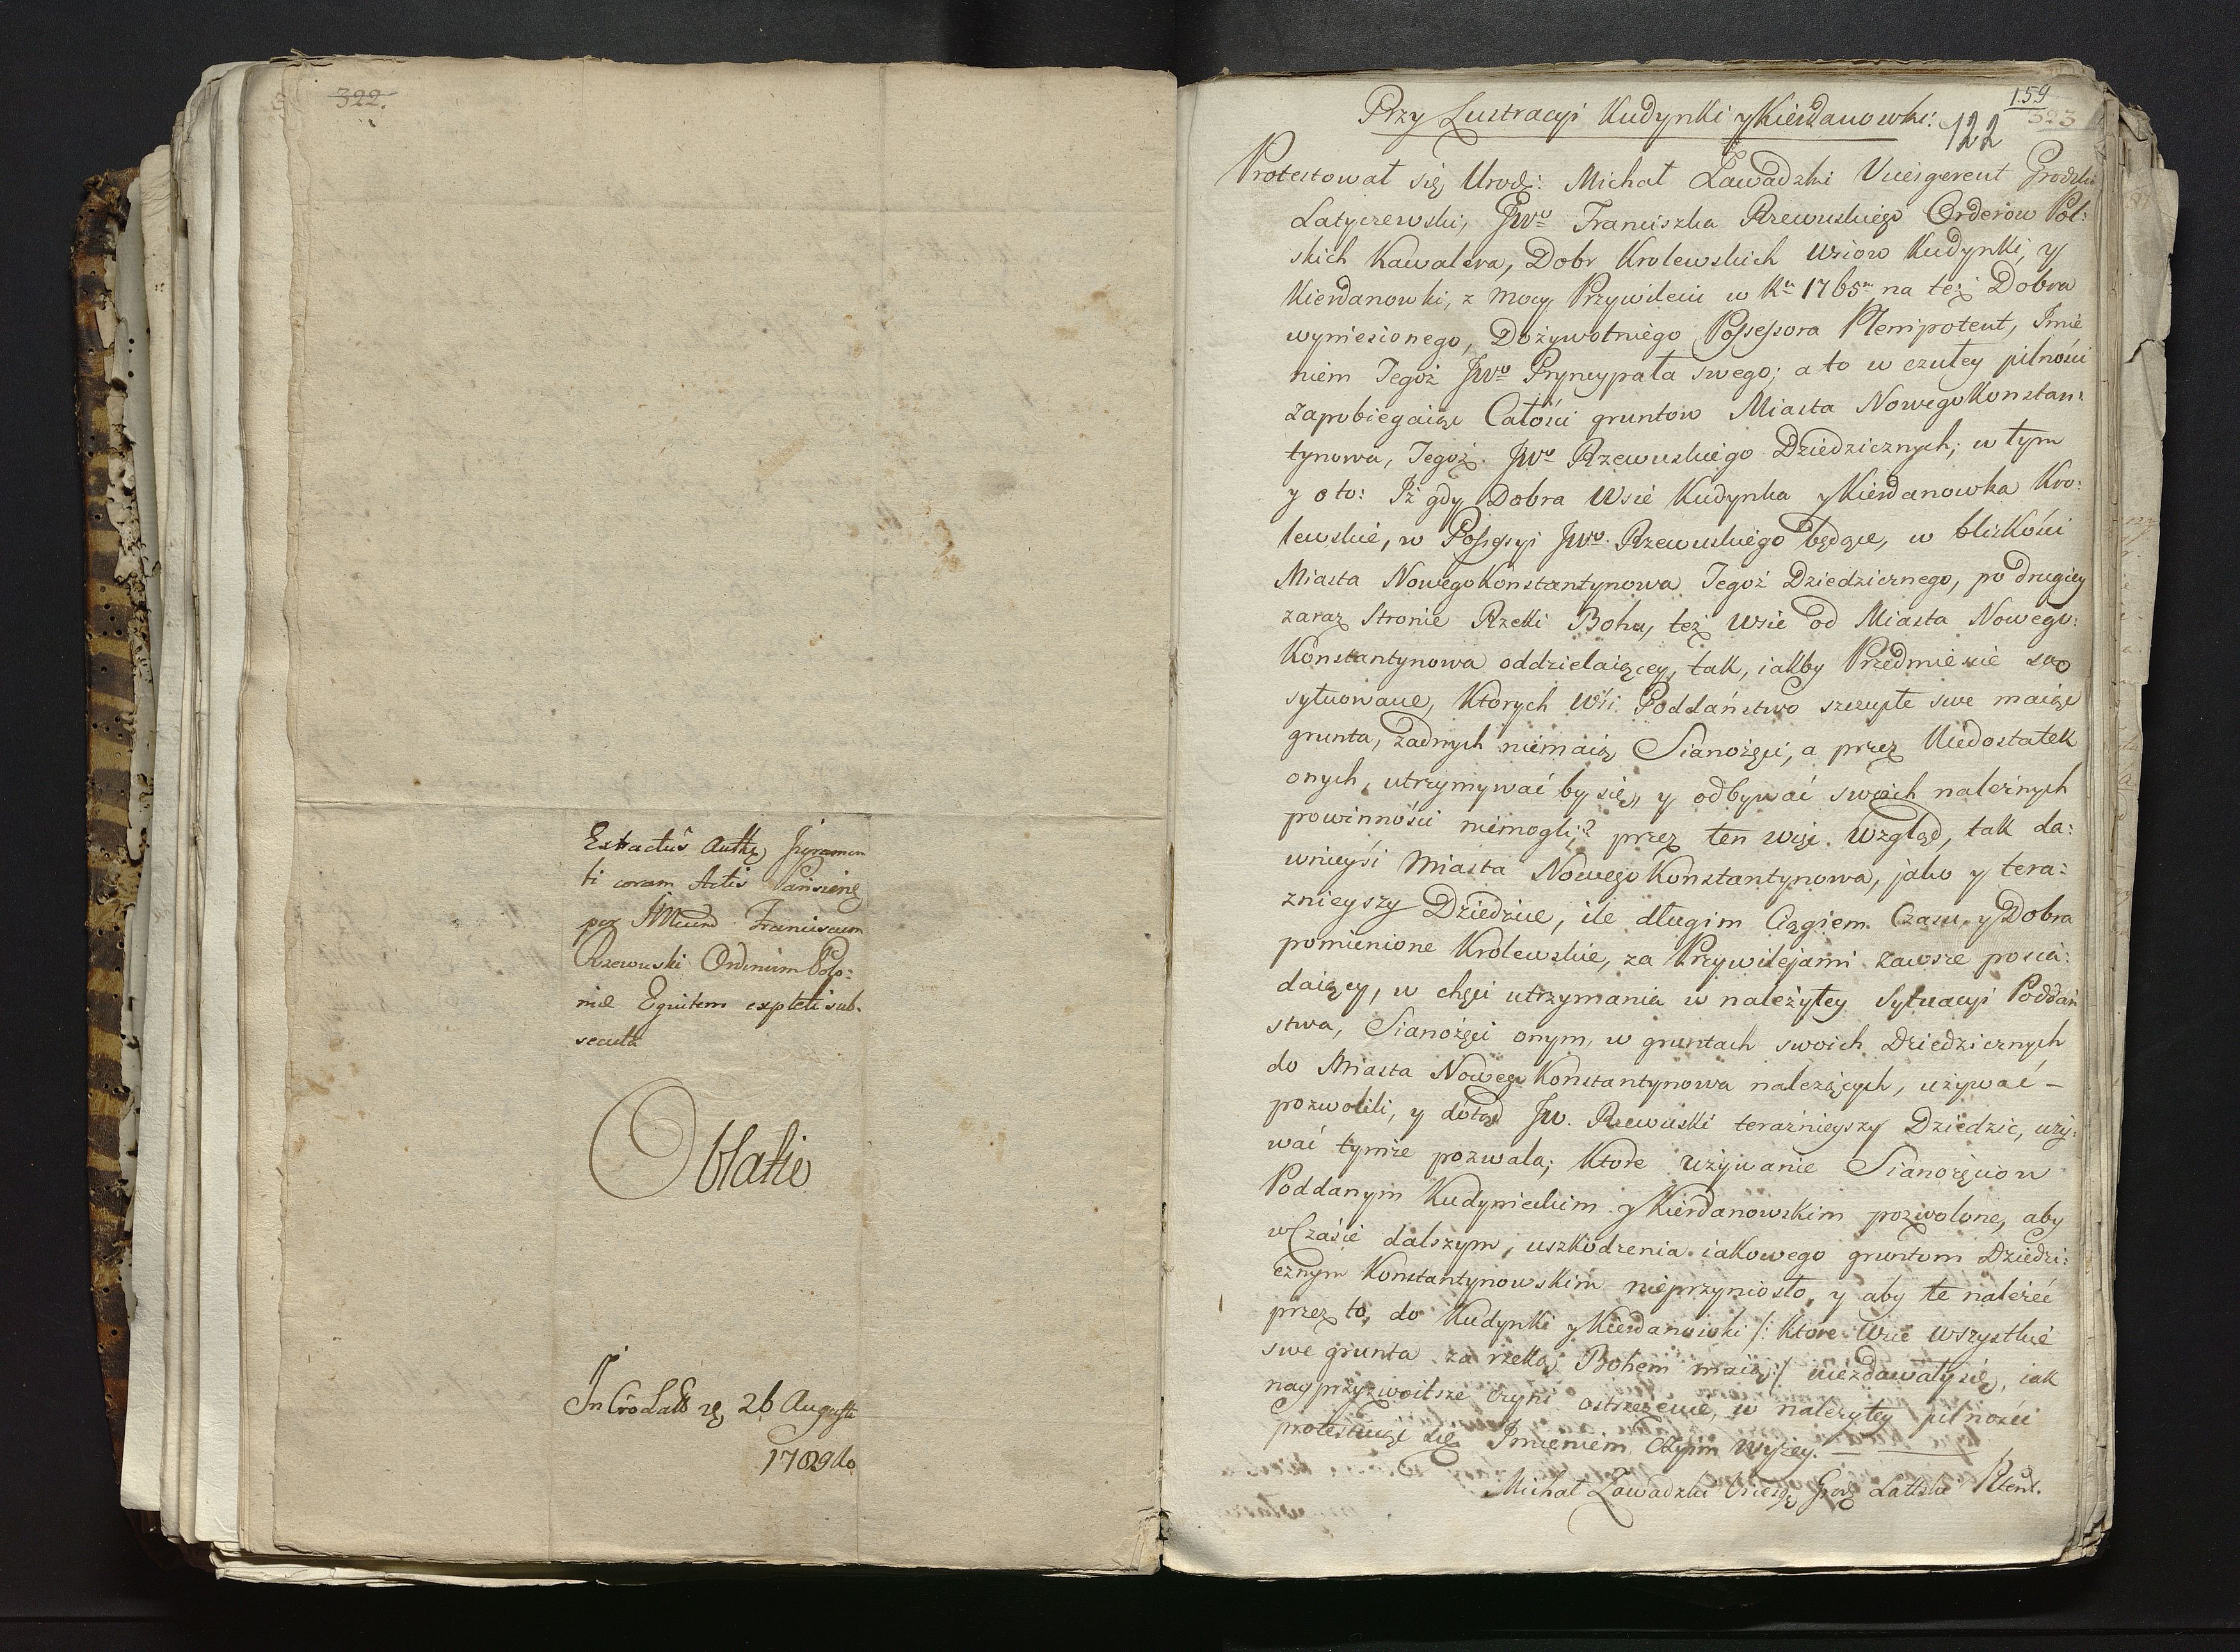 322.
Extractus Authq Juramen
ti coram Actis
per Franciscum
Rzewuski Ordinum Polo:
niæ Equitem expleti sub-
secuta
Oblatio
26 Augusti
1789
159
323
Przy Lustracyi Kudynki y Kierdanowki:
122
Protestował się Urodz: Michał Zawadzki Vicesgerent Grodzki
Latyczewski, JWo Franciszka Rzewuskiego Orderow Pol:
skich Kawalera, Dobr Krolewskich Wsiow Kudynki, y
Kierdanowki, z mocy Przywileiu w Ru 1765m na też Dobra
wyniesionego, Dożywotniego Possessora Plenipotent, Imie
niem Tegoż JWo Pryncypała swego; a to w czułey pilności
zapobiegaiąc Całości gruntow Miasta Nowego Konstan:
tynowa, Tegoż JWo Rzewuskiego Dziedzicznych; w tym
y o to: Iż gdy Dobra Wsie Kudynka y Kierdanowka Kro:
lewskie, w Possessyi JWo Rzewuskiego będące, w bliskości
Miasta Nowego Konstantynowa Tegoż Dziedzicznego, po drugiey
zaraz Stronie Rzeki Bohu, też Wsie od Miasta Nowego:
Konstantynowa oddzielaiącey, tak, iakby Przedmieście są
sytuowane, Ktorych Wsi Poddaństwo szczupłe swe maiąc
grunta, żadnych niemaią Sianożęci, a przez Niedostatek
onych, utrzymywać by się, y odbywać swoich należnych
powinności niemogli; przez ten więc Wzgląd, tak da:
wnieysi Miasta Nowego Konstantynowa, jako y tera:
znieyszy Dziedzice, ile długim Ciągiem Czasu y Dobra
pomienione Krolewskie, za Przywilejami zawsze posia:
daiący, w chęci utrzymania w należytey Sytuacyi Poddań
stwa, Sianożęci onym, w gruntach swoich Dziedzicznych
do Miasta Nowego Konstantynowa należących, używać –
pozwolili, y dotąd JW. Rzewuski teraźnieyszy Dziedzic, uży:
wać tymże pozwala; Ktore używanie Sianożęciow
Poddanym Kudynieckim y Kierdanowskim pozwolone, aby
w Czasie dalszym, uszkodzenia iakowego gruntom Dziedzi:
cznym Konstantynowskim nieprzyniosło, y aby te należeć
przez to, do Kudynki y Kierdanowki /: Ktore Wsie wszystkie
swe grunta za rzeką Bohem maią:/ niezdawały się, iak
nayprzyzwoitsze czyni ostrzeżenie, w należytey pilności
protestuiąc się Imieniem Czyim wyżey.
Michał Zawadzki Vicesg Grodz Lattski Pltent.